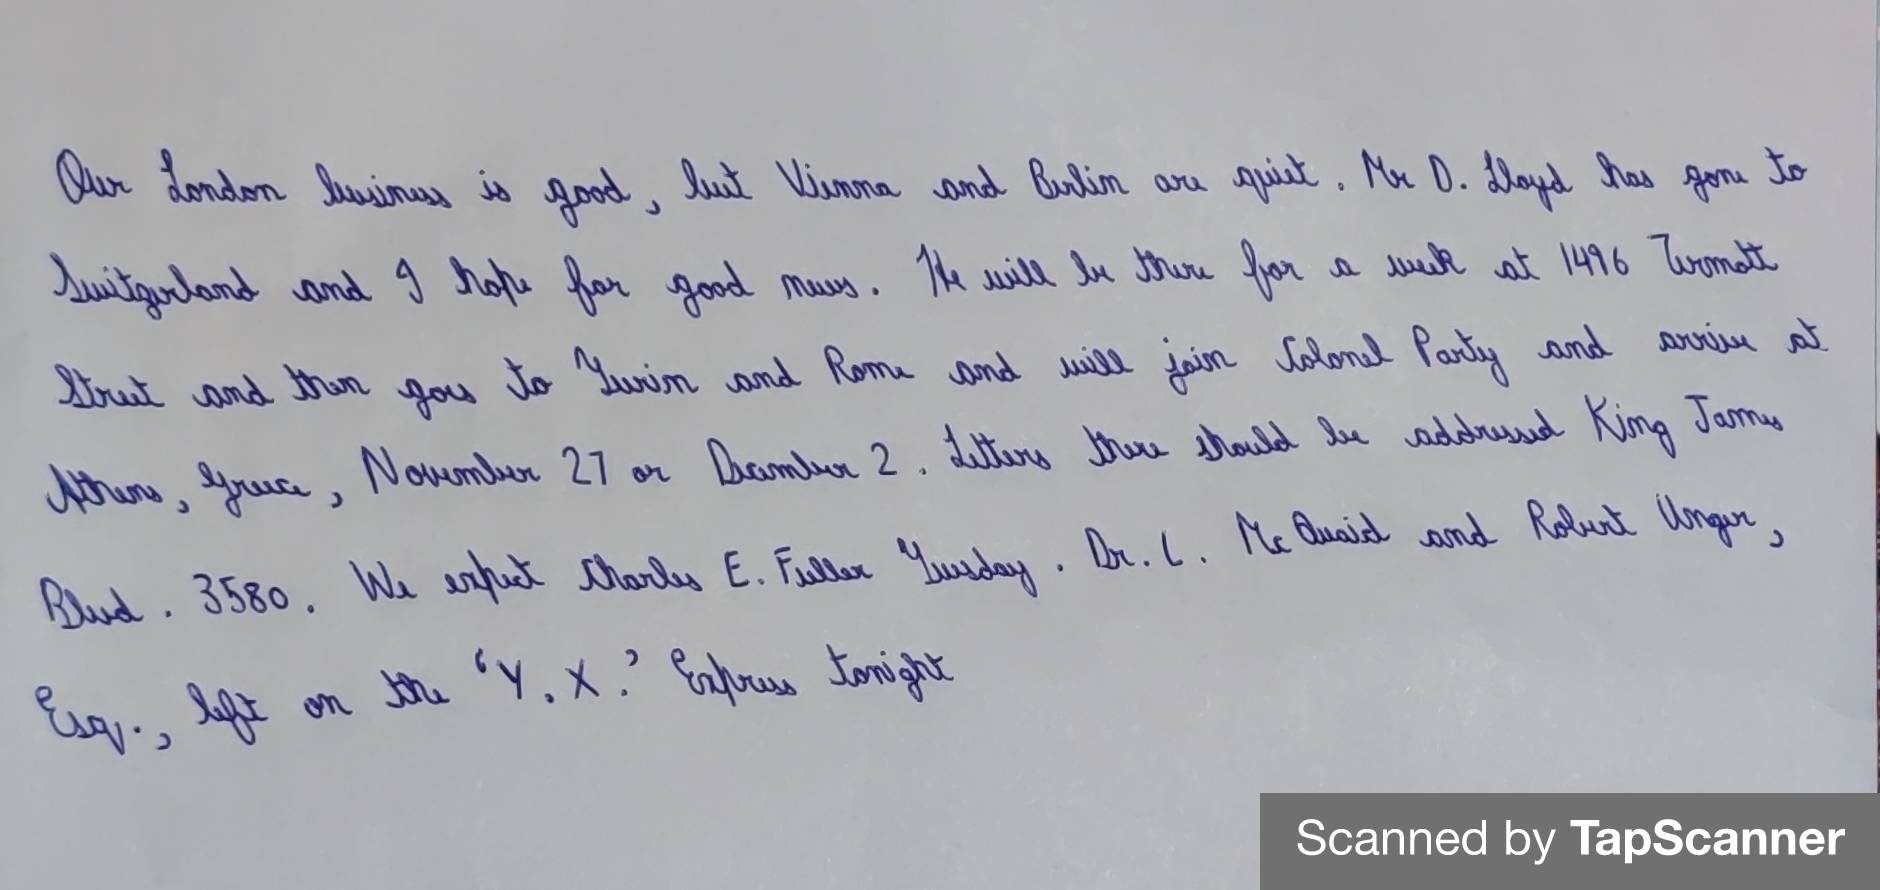 Our London business is good, but Vienna and Berlin are quiet. Mr D. Lloyd has gone to
Switzerland and I hope for good news. He will be there for a week at 1496 Zermott
Street and then goes to Turin and Rome and will join Colonel Party and arrive at
Athens, Greece, November 27 or December 2. Letters there should be addressed King James
Blvd. 3580. We expect Charles E. Fuller Tuesday. Dr. L. Mc Quaid and Robert Unger,
Esq., left on the 'Y.X.' Express tonight
Scanned by TapScanner